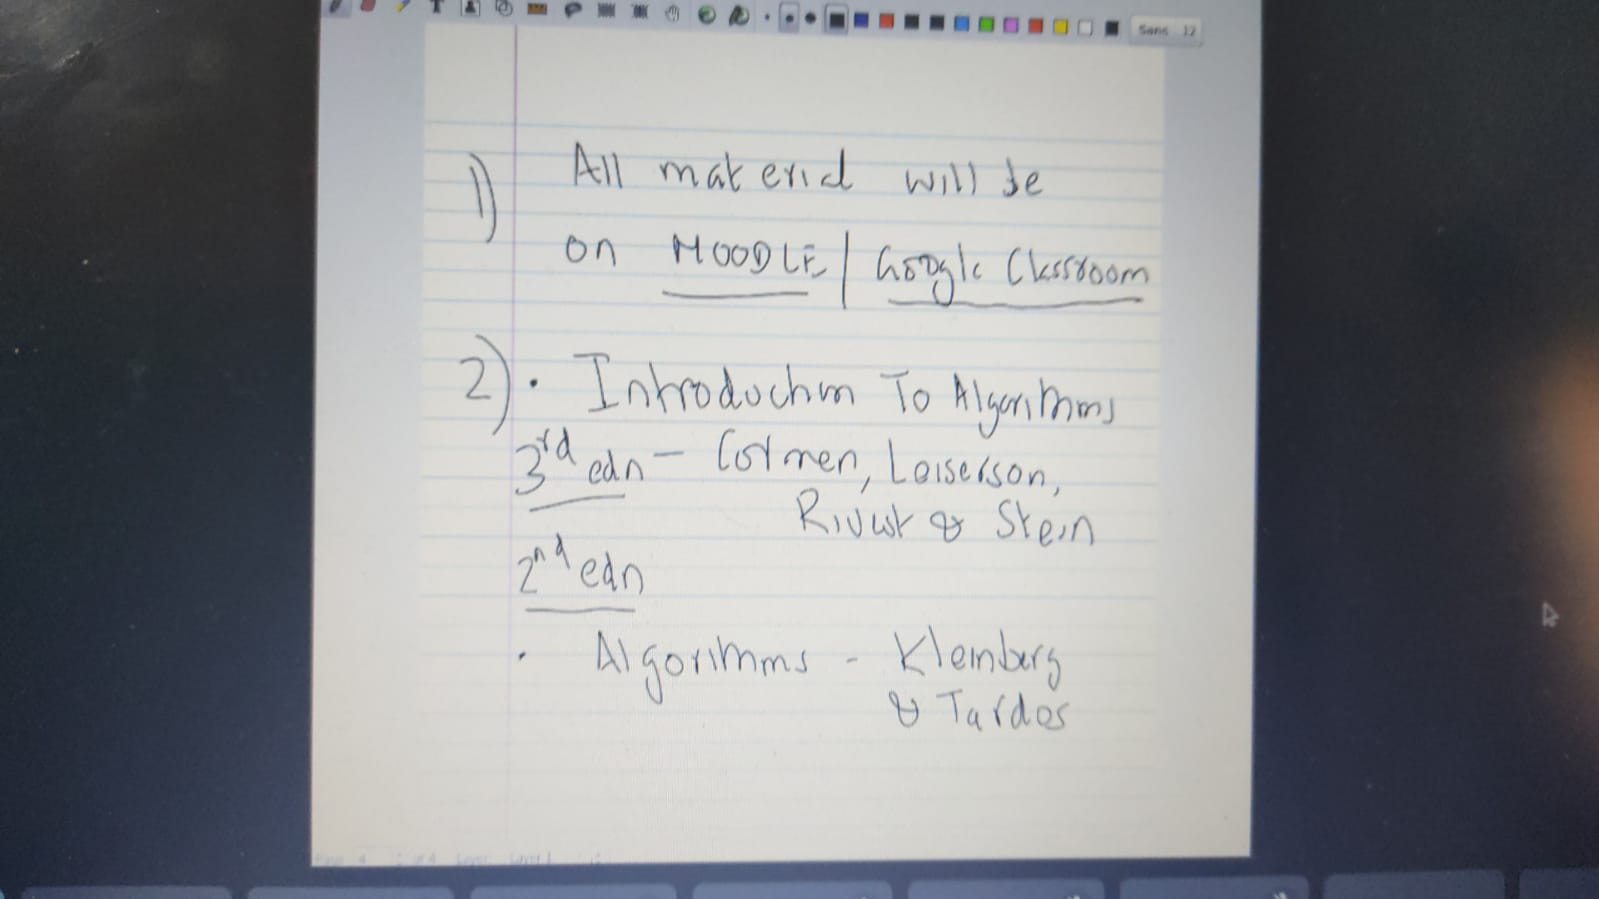 Sans 12
1) All material will be
on MOODLE / Google Classroom
2) • Introduction To Algorithms
3rd edn - Cormen, Leiserson,
Rivest & Stein
2nd edn
• Algorithms - Kleinberg
& Tardos